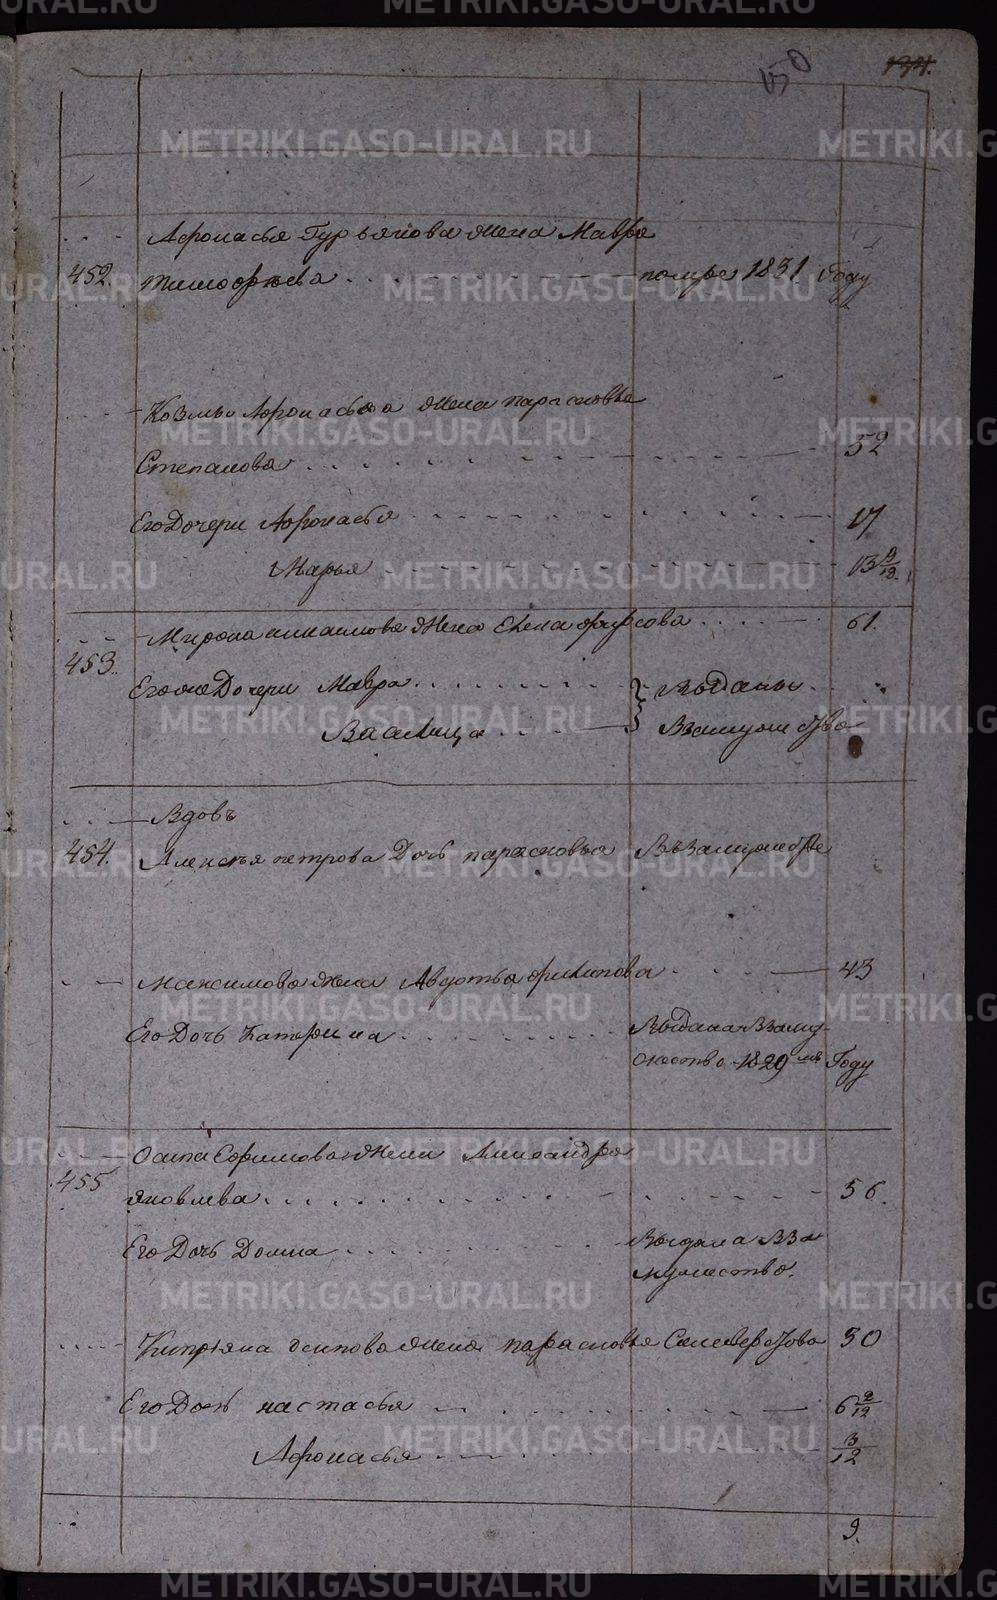 150 134.
Афонасья Гурьянова жена Мавра
452. тимофѣева помре 1831 Году
Козмы Афонасьева жена парасковье
Степанова 52
Его Дочери Афонасья 17
Марья 13
453. Мирона жена Елена фирсова 61.
Его же Дочери Мавра Выданы
Василиса Взамужество
Вдовъ
454. Алексѣя петрова Дочь парасковья Въ Замужестве
Максимова жена Авдотья филипова 43
Его Дочь Катерина Выдана Взаму
жество 1829 мъ Году
Осипа Ефимова жена Александра
455 яковлева 56.
Его Дочь Домна Выдана Вза
мужество.
Кипрiяна осипова жена парасковья Селиверстова 50
Его Дочь настасья 6 2/12
Афонасья 3/12
9.
METRIKI.GASO-URAL.RU